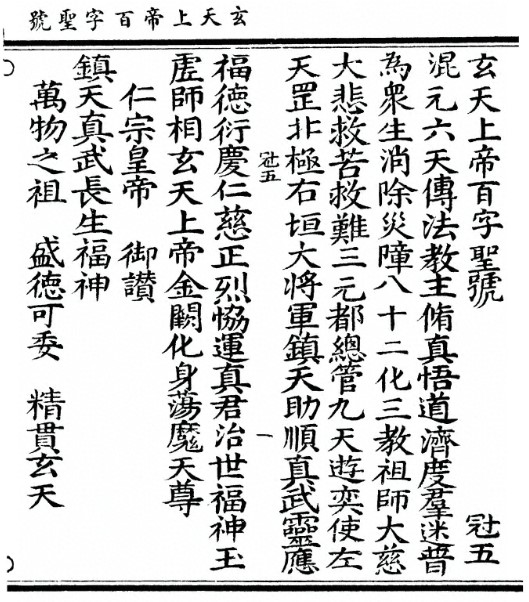 玄天上帝百字聖號
玄天上帝百字聖號 冠五
混元六天傳法教主脩真悟道濟度羣迷普
為衆生消除災障八十二化三教祖師大慈
大悲救苦救難三元都總管九天遊奕使左
天罡北極右垣大將軍鎮天助順真武靈應
冠五 一
福德衍慶仁慈正烈恊運真君治世福神玉
虛師相玄天上帝金闕化身蕩魔天尊
仁宗皇帝 御讃
鎮天真武長生福神
萬物之祖 盛德可委 精貫玄天